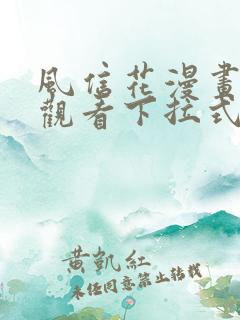 風信花漫畫
觀看下拉式
黄凱紅
未任同意禁止转載